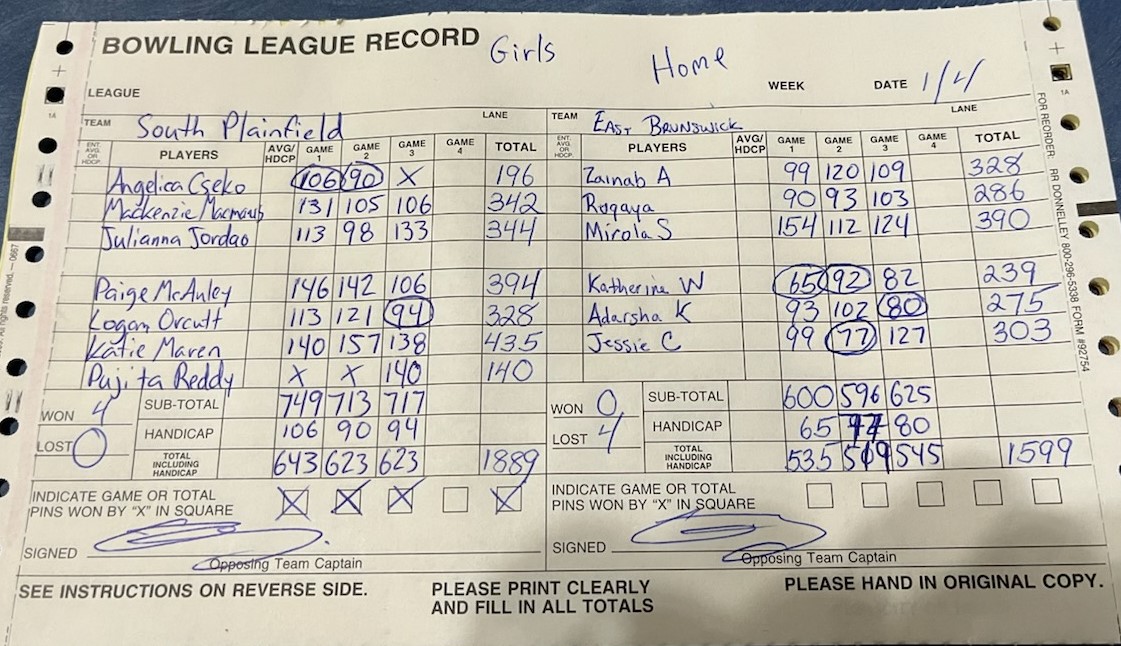 BOWLING LEAGUE RECORD Girls Home
LEAGUE WEEK DATE 1/4
TEAM South Plainfield LANE TEAM EAST BRUNSWICK LANE
ENT. AVG. OR HDCP. PLAYERS AVG/HDCP GAME 1 GAME 2 GAME 3 GAME 4 TOTAL ENT. AVG. OR HDCP. PLAYERS AVG/HDCP GAME 1 GAME 2 GAME 3 GAME 4 TOTAL
Angelica Cseko 106 90 X 196 Zainab A 99 120 109 328
Mackenzie 131 105 106 342 Rogaya 90 93 103 286
Julianna Jordao 113 98 133 344 Mirola S 154 112 124 390
Paige McAnley 146 142 106 394 Katherine W 65 92 82 239
Logan Orcutt 113 121 94 328 Adarsha K 93 102 80 275
Katie Maren 140 157 138 435 Jessie C 99 77 127 303
Pujita Reddy X X 140 140
WON 4 SUB-TOTAL 749 713 717 WON 0 SUB-TOTAL 600 596 625
LOST 0 HANDICAP 106 90 94 LOST 4 HANDICAP 65 77 80
TOTAL INCLUDING HANDICAP 643 623 623 1889 TOTAL INCLUDING HANDICAP 535 519 545 1599
INDICATE GAME OR TOTAL PINS WON BY "X" IN SQUARE X X X X INDICATE GAME OR TOTAL PINS WON BY "X" IN SQUARE
SIGNED SIGNED
Opposing Team Captain Opposing Team Captain
SEE INSTRUCTIONS ON REVERSE SIDE. PLEASE PRINT CLEARLY AND FILL IN ALL TOTALS PLEASE HAND IN ORIGINAL COPY.
FOR REORDER: RR DONNELLEY 800-296-5338 FORM #92754
1A
1A
All rights reserved. — 0667